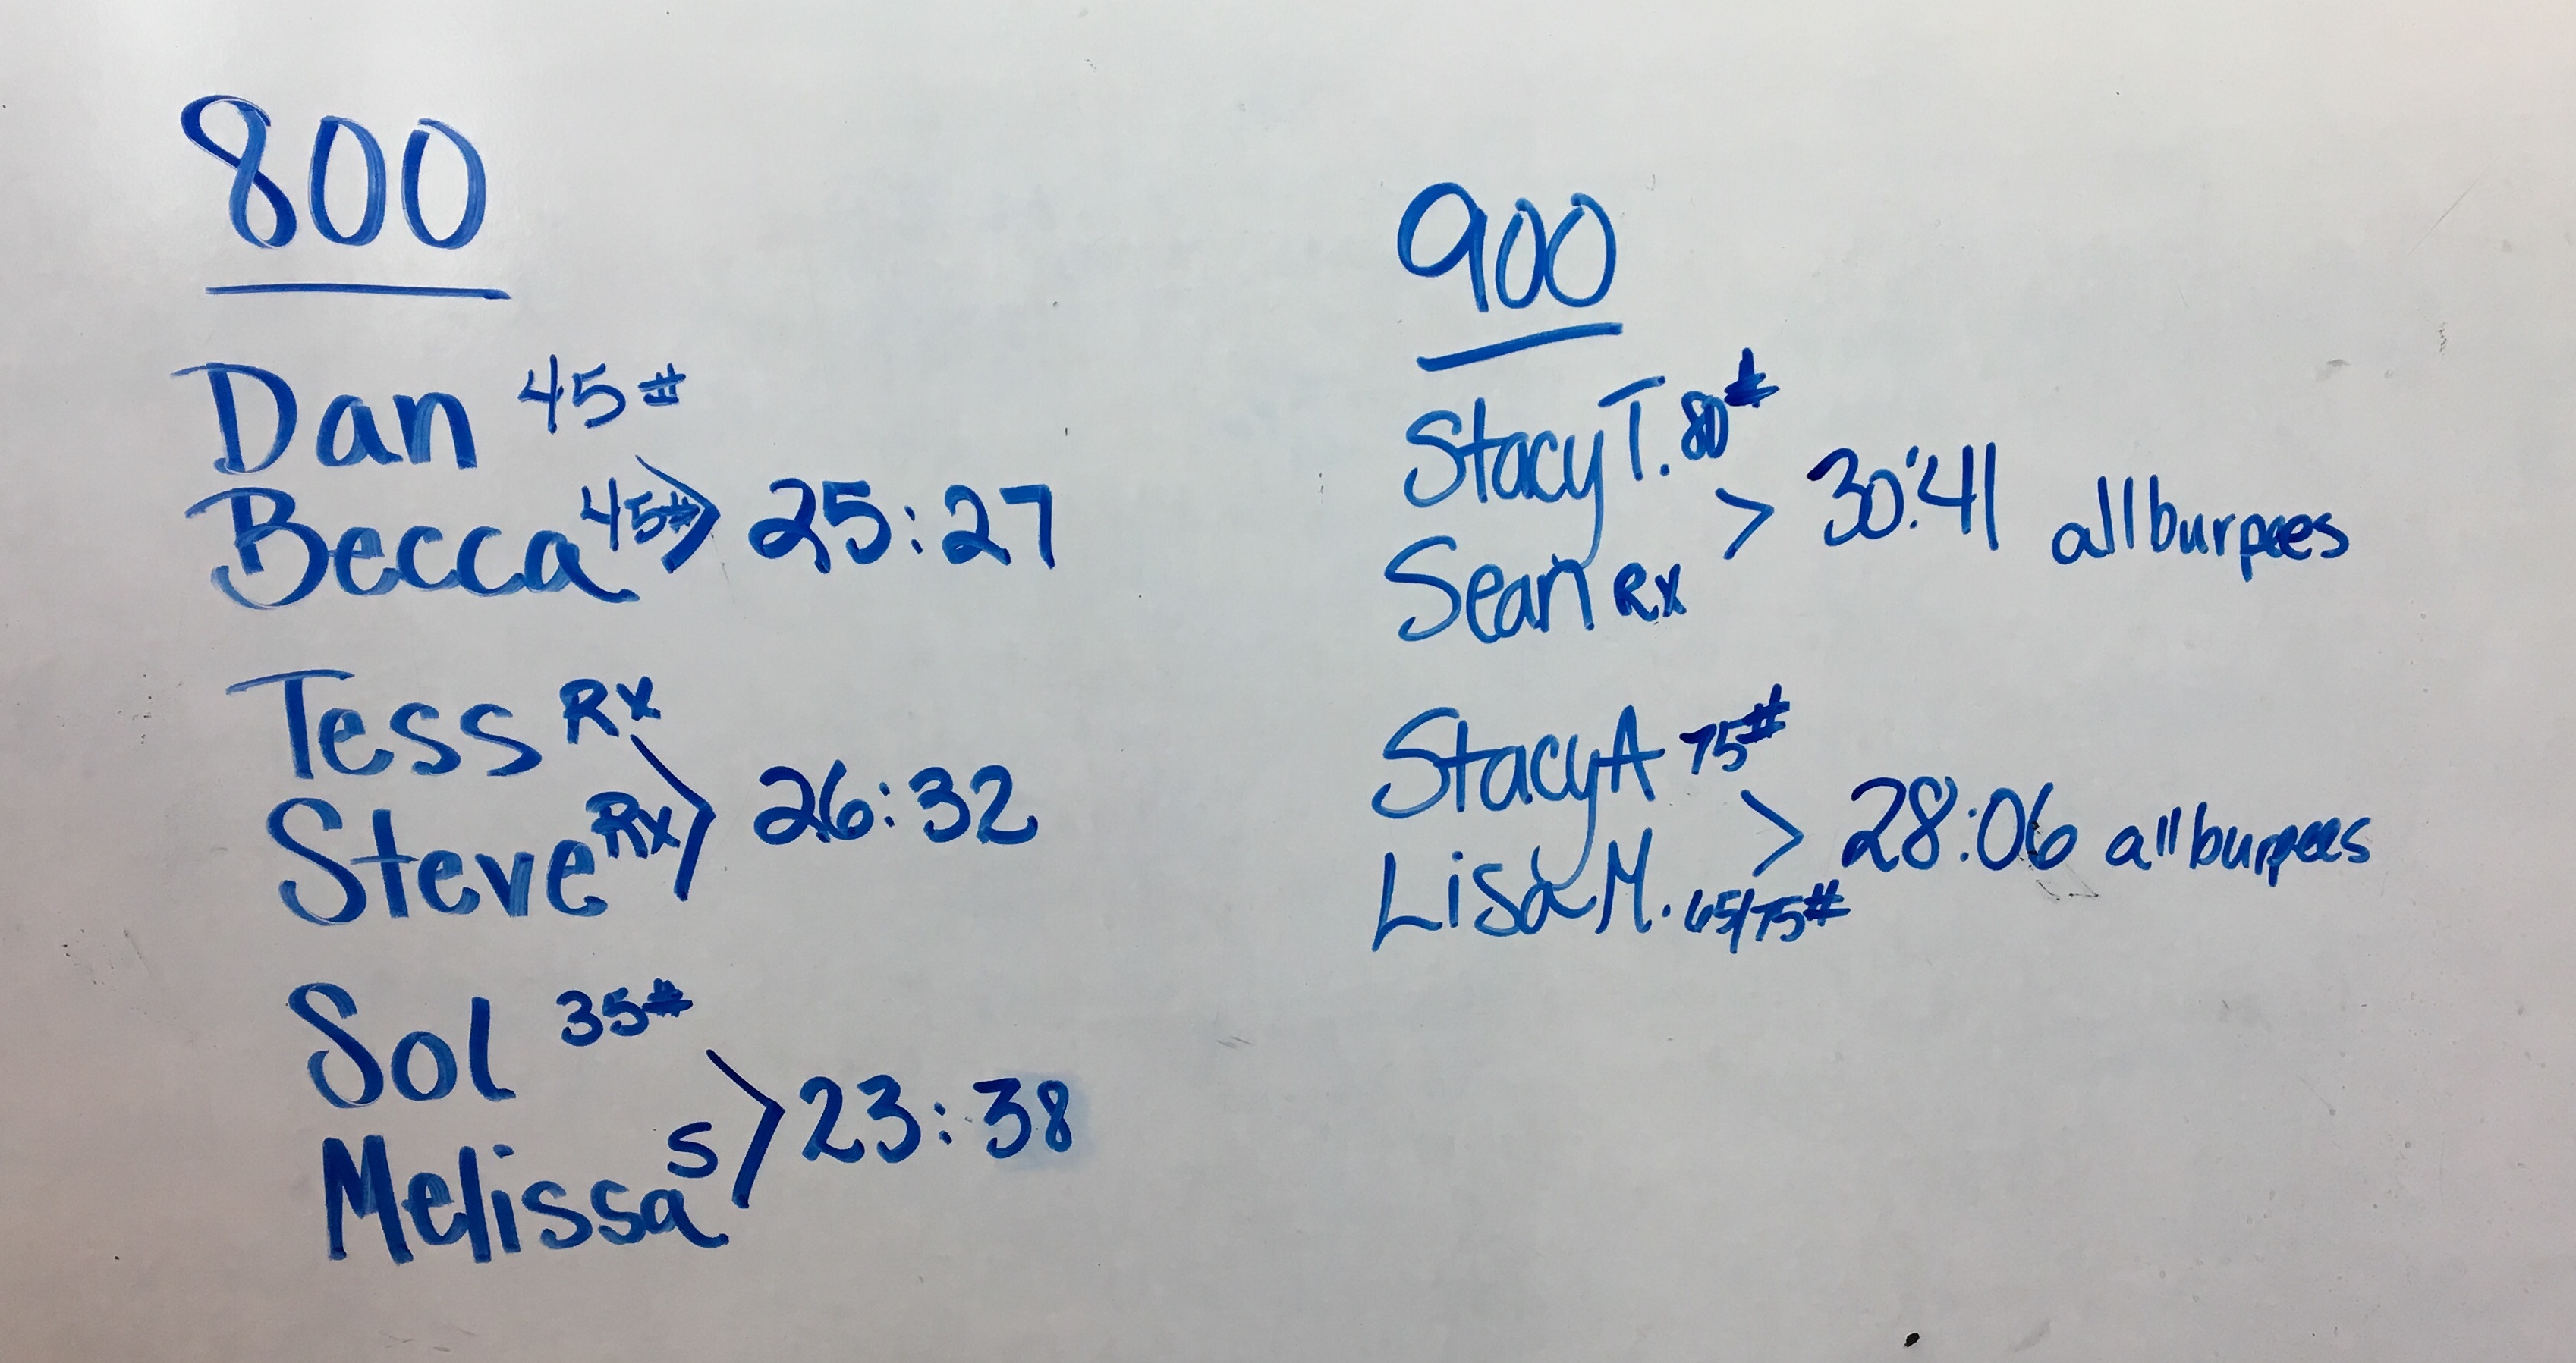 800
Dan 45#
Becca 45# > 25:27
Tess Rx
Steve Rx > 26:32
Sol 35#
Melissa S > 23:38
900
Stacy T. 80#
> 30:41 all burpees
Sean Rx
Stacy A 75#
> 28:06 all burpees
Lisa M. 65/75#